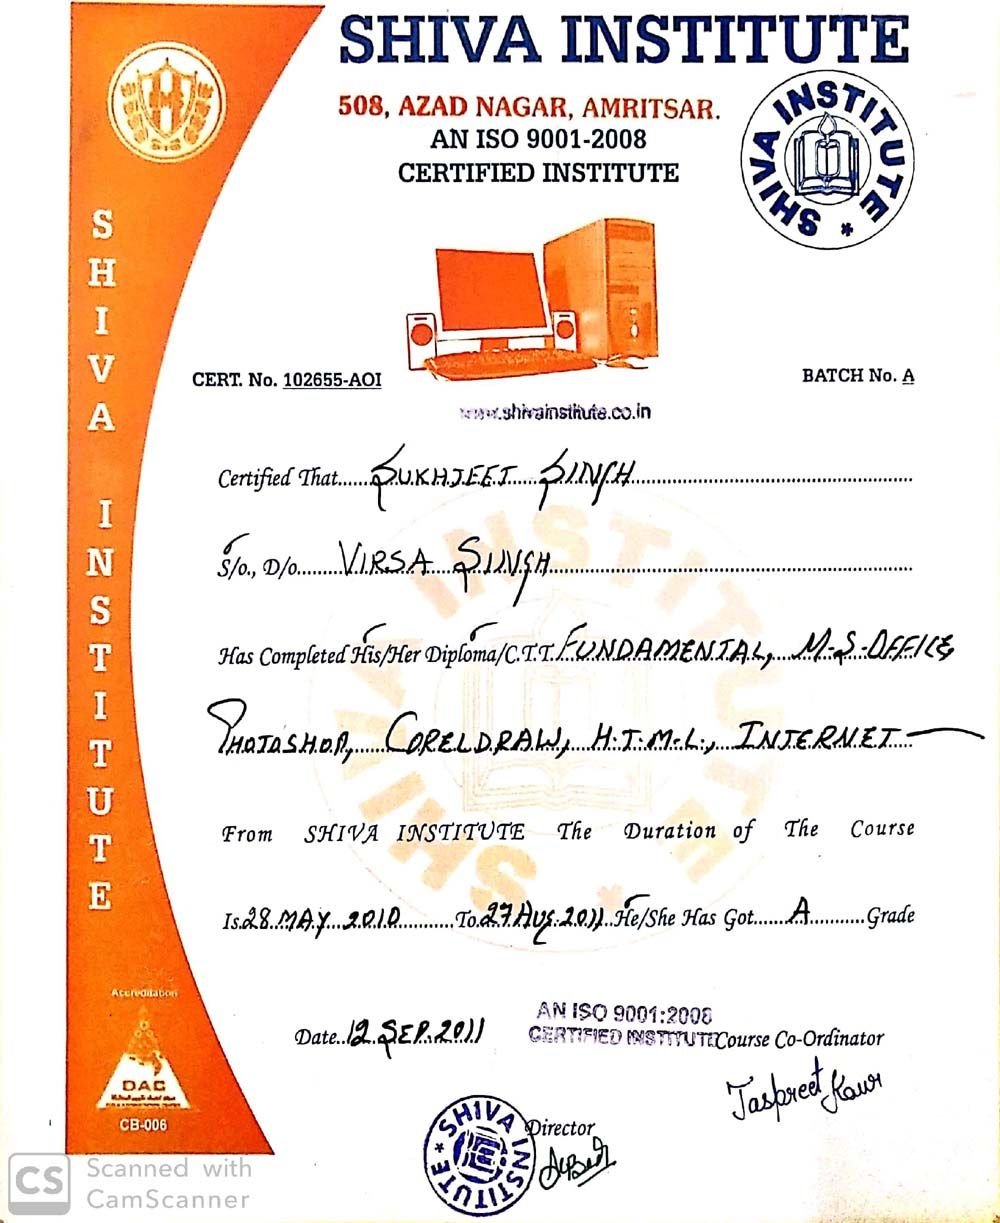 SHIVA INSTITUTE
508, AZAD NAGAR, AMRITSAR.
AN ISO 9001-2008
CERTIFIED INSTITUTE
SHIVA INSTITUTE *
SHIVA INSTITUTE
CERT. No. 102655-AOI
BATCH No. A
www.shivainstitute.co.in
Certified That......SUKHJEET SINGH
S/o., D/o.........VIRSA SINGH
Has Completed His/Her Diploma/C.T.T. FUNDAMENTAL, M.S.OFFICE,
PHOTOSHOP, CORELDRAW, H.T.M.L., INTERNET
From SHIVA INSTITUTE The Duration of The Course
Is 28 MAY 2010 To 27 AUG 2011 He/She Has Got......A..........Grade
Accreditation
DAC
CB-006
Date..12 SEP. 2011
AN ISO 9001:2008
CERTIFIED INSTITUTE
Course Co-Ordinator
Jaspreet Kaur
Director
SHIVA INSTITUTE *
CS Scanned with
CamScanner